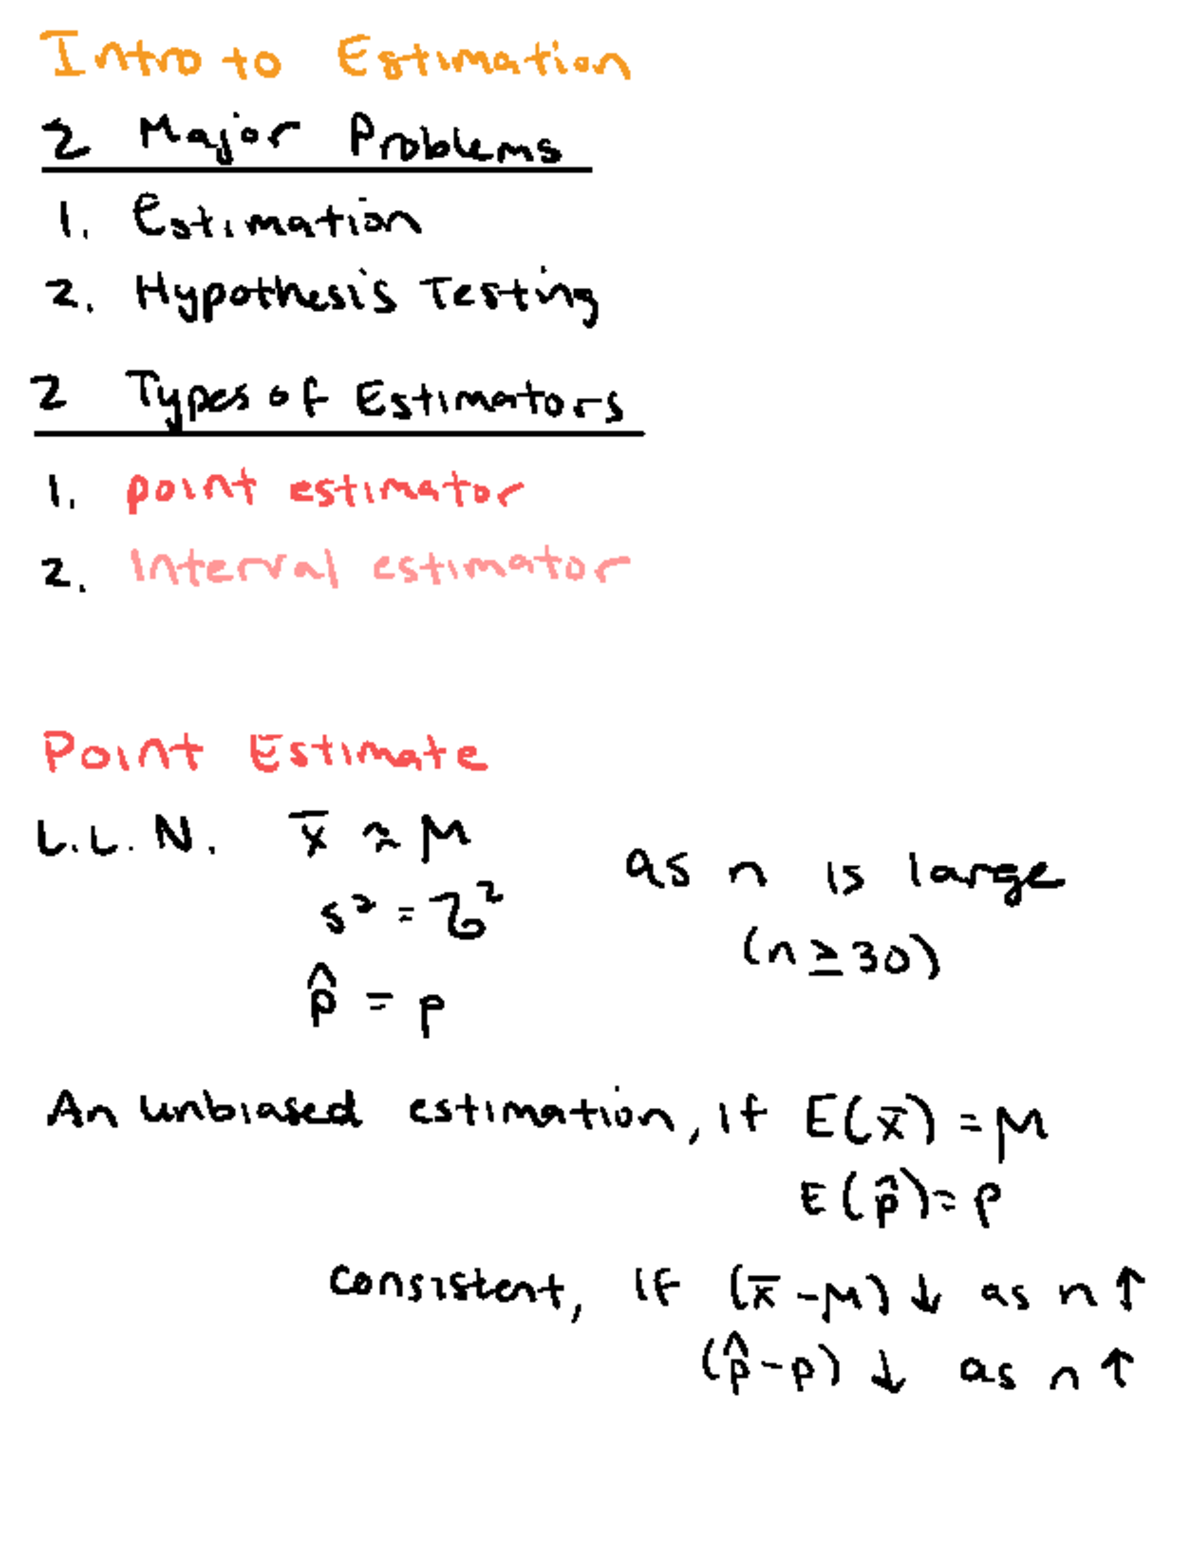 Intro to Estimation
2 Major Problems
1. Estimation
2. Hypothesis Testing
2 Types of Estimators
1. point estimator
2. Interval estimator
Point Estimate
L.L.N. x̄ ≈ μ
as n is large
s² = σ²
(n ≥ 30)
p̂ = p
An unbiased estimation, if E(x̄) = μ
E(p̂) = p
consistent, if (x̄ - μ) ↓ as n ↑
(p̂ - p) ↓ as n ↑